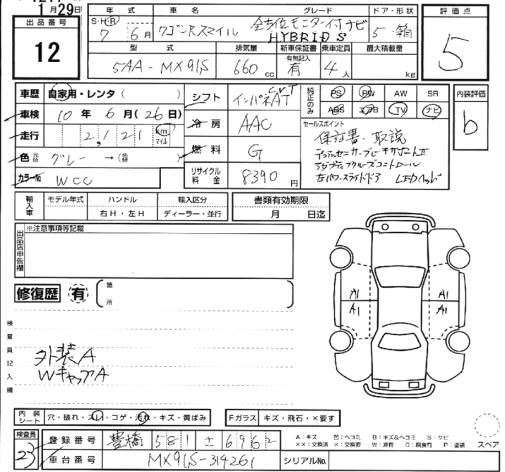 1月29日
出品番号 12
年式 車名 グレード ドア・形状
S・H・R 7年 6月 ワゴンRスマイル 全方位モニター付ナビ HYBRID S 5 箱
型式 排気量 新車保証書 乗車定員 最大積載量
5AA-MX91S 660cc 有 有・無 4人 kg
評価点 5
車歴 自家用・レンタ ( )
車検 10年6月(26日)
走行 2,121 km マイル
色 元色 グレー→(替 )
カラーNo. WCC
シフト インパネCVT AT
冷房 AAC
燃料 G
リサイクル料金 8390円
純正のみ PS PW AW SR
ABS エアB TV ナビ
内装評価 b
セールスポイント
保証書・取説
アダプティブクルーズコントロール
左パワースライドドア LEDヘッド
輸入車 モデル年式 ハンドル 輸入区分
年 右H・左H ディーラー・並行
書類有効期限
月 日迄
出品店申告欄 ※注意事項等記載
修復歴 有 箇所
検査員記入欄
外装A
WキャップA
A1 A1
A1 A1
内装シート 穴・破れ・スレ・コゲ・汚れ・キズ・黄ばみ
Fガラス キズ・飛石・×要す
検査員 23
登録番号 豊橋 581 せ 6962
車台番号 MX91S-314261 シリアルNo.
スペア